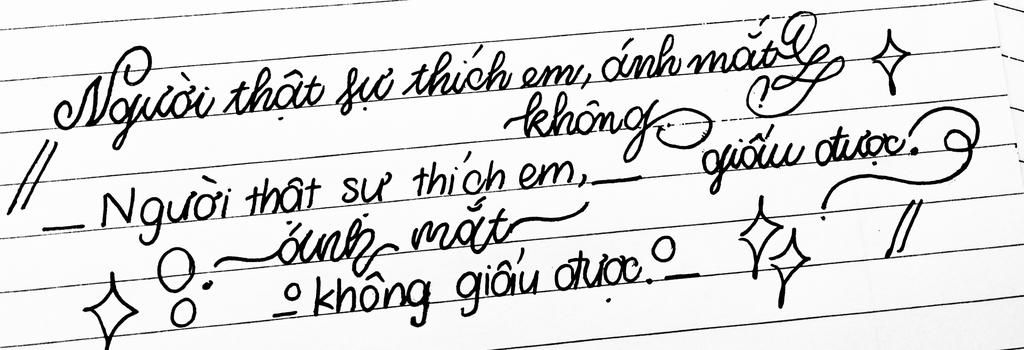 Người thật sự thích em, ánh mắt
không
giấu được.
Người thật sự thích em,
ánh mắt
không giấu được.